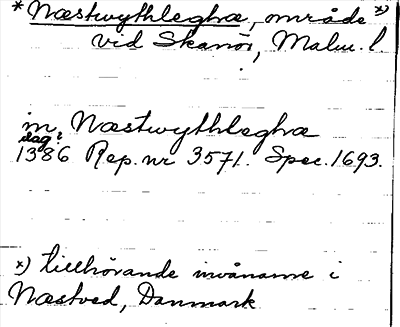 * Næstwythleghæ, område *)
vid Skanör, Malm. l.
in Næstwythleghæ
dag?
1386 Rep. nr 3571. Spec. 1693.
*) tillhörande invånarne i
Næstved, Danmark